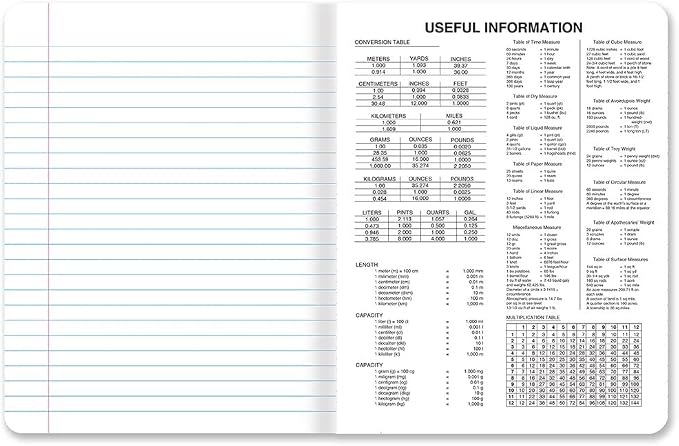 USEFUL INFORMATION
CONVERSION TABLE
METERS YARDS INCHES
1.000 1.093 39.37
0.914 1.000 36.00
CENTIMETERS INCHES FEET
1.00 0.394 0.0328
2.54 1.000 0.0833
30.48 12.000 1.0000
KILOMETERS MILES
1.000 0.621
1.609 1.000
GRAMS OUNCES POUNDS
1.00 0.035 0.0020
28.35 1.000 0.0625
453.59 16.000 1.0000
1,000.00 35.274 2.2050
KILOGRAMS OUNCES POUNDS
1.00 35.274 2.2050
0.028 1.000 0.0625
0.454 16.000 1.0000
LITERS PINTS QUARTS GAL
1.000 2.113 1.057 0.264
0.473 1.000 0.500 0.125
0.946 2.000 1.000 0.250
3.785 8.000 4.000 1.000
LENGTH
1 meter (m) = 100 cm = 1,000 mm
1 millimeter (mm) = 0.001 m
1 centimeter (cm) = 0.01 m
1 decimeter (dm) = 0.1 m
1 decameter (dkm) = 10 m
1 hectometer (hm) = 100 m
1 kilometer (km) = 1,000 m
CAPACITY
1 liter (l) = 100 cl = 1,000 ml
1 milliliter (ml) = 0.001 l
1 centiliter (cl) = 0.01 l
1 deciliter (dl) = 0.1 l
1 decaliter (dkl) = 10 l
1 hectoliter (hl) = 100 l
1 kiloliter (kl) = 1,000 l
CAPACITY
1 gram (g) = 100 cg = 1,000 mg
1 milligram (mg) = 0.001 g
1 centigram (cg) = 0.01 g
1 decigram (cg) = 0.1 g
1 decagram (dkg) = 10 g
1 hectogram (hg) = 100 g
1 kilogram (kg) = 1,000 g
Table of Time Measure
60 seconds = 1 minute
60 minutes = 1 hour
24 hours = 1 day
7 days = 1 week
30 days = 1 calendar mth
12 months = 1 year
365 days = 1 common year
366 days = 1 leap year
100 years = 1 century
Table of Dry Measure
2 pints (pt) = 1 quart (qt)
8 quarts = 1 peck (pk)
4 pecks = 1 bushel (bu)
1 cord = 128 cu. ft
Table of Liquid Measure
4 gills (gi) = 1 pint (pt)
2 pints = 1 quart (qt)
4 quarts = 1 gallon (gal)
31-1/2 gallons = 1 barrel (bbl)
2 barrels = 1 hogsheads (hhd)
Table of Paper Measure
25 sheets = 1 quire
20 quires = 1 ream
10 reams = 1 bale
Table of Linear Measure
12 inches = 1 foot
3 feet = 1 yard
5-1/2 yards = 1 rod
40 rods = 1 furlong
8 furlongs (5280 ft) = 1 mile
Miscellaneous Measure
12 units = 1 dozen
12 doz = 1 gross
12 gr = 1 great gross
20 units = 1 score
1 hand = 4 inches
1 fathom = 6 feet
1 knot = 6076 feet/hour
3 knots = 1 league/hour
Table of Cubic Measure
1728 cubic inches = 1 cubic foot
27 cubic feet = 1 cubic yard
128 cubic feet = 1 cord
24-3/4 cubic feet = 1 perch of stone
Table of Avoirdupois Weight
16 drams = 1 ounce
16 ounces = 1 pound (lb)
100 pounds = 1 hundred-
weight (cwt)
2000 pounds = 1 ton (T)
2240 pounds = 1 long ton (LT)
Table of Troy Weight
24 grains = 1 penny weight (dwt)
20 penny weights = 1 ounce (oz)
12 ounces = 1 pound (lb)
Table of Circular Measure
60 seconds = 1 minute
60 minutes = 1 degree
360 degrees = 1 circumference
Table of Apothecaries' Weight
20 grains = 1 scruple
3 scruples = 1 dram
8 drams = 1 ounce
12 ounces = 1 pound (lb)
Table of Surface Measures
144 sq in = 1 sq ft
9 sq ft = 1 sq yd
30-1/4 sq yds = 1 sq rod
160 sq rods = 1 acre
640 acres = 1 sq mi
MULTIPLICATION TABLE
1 2 3 4 5 6 7 8 9 10 11 12
1 1 2 3 4 5 6 7 8 9 10 11 12
2 2 4 6 8 10 12 14 16 18 20 22 24
3 3 6 9 12 15 18 21 24 27 30 33 36
4 4 8 12 16 20 24 28 32 36 40 44 48
5 5 10 15 20 25 30 35 40 45 50 55 60
6 6 12 18 24 30 36 42 48 54 60 66 72
7 7 14 21 28 35 42 49 56 63 70 77 84
8 8 16 24 32 40 48 56 64 72 80 88 96
9 9 18 27 36 45 54 63 72 81 90 99 108
10 10 20 30 40 50 60 70 80 90 100 110 120
11 11 22 33 44 55 66 77 88 99 110 121 132
12 12 24 36 48 60 72 84 96 108 120 132 144